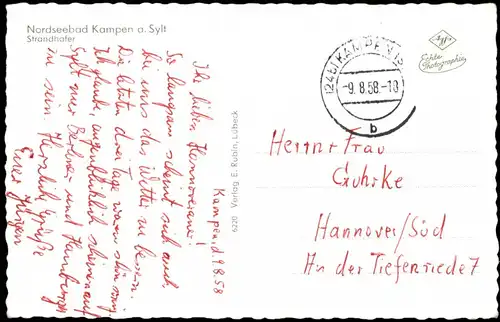 Nordseebad Kampen a. Sylt
Strandhafer
Kampen, d. 9.8.58
Ihr lieben Hannoveraner!
So langsam scheint sich auch
bei uns das Wetter zu bessern.
Die letzten drei Tage waren schön warm.
Ich glaube, augenblicklich scheinen auf
Sylt nur Berliner und Hamburger
zu sein. Herzliche Grüße
Euer Jürgen
6220 Verlag E. Rubin, Lübeck
(24b) KAMPEN
-9.8.58.-18
b
Agfa
Echte
Photographie
Herrn + Frau
Guhrke
Hannover/Süd
An der Tiefenriede 7